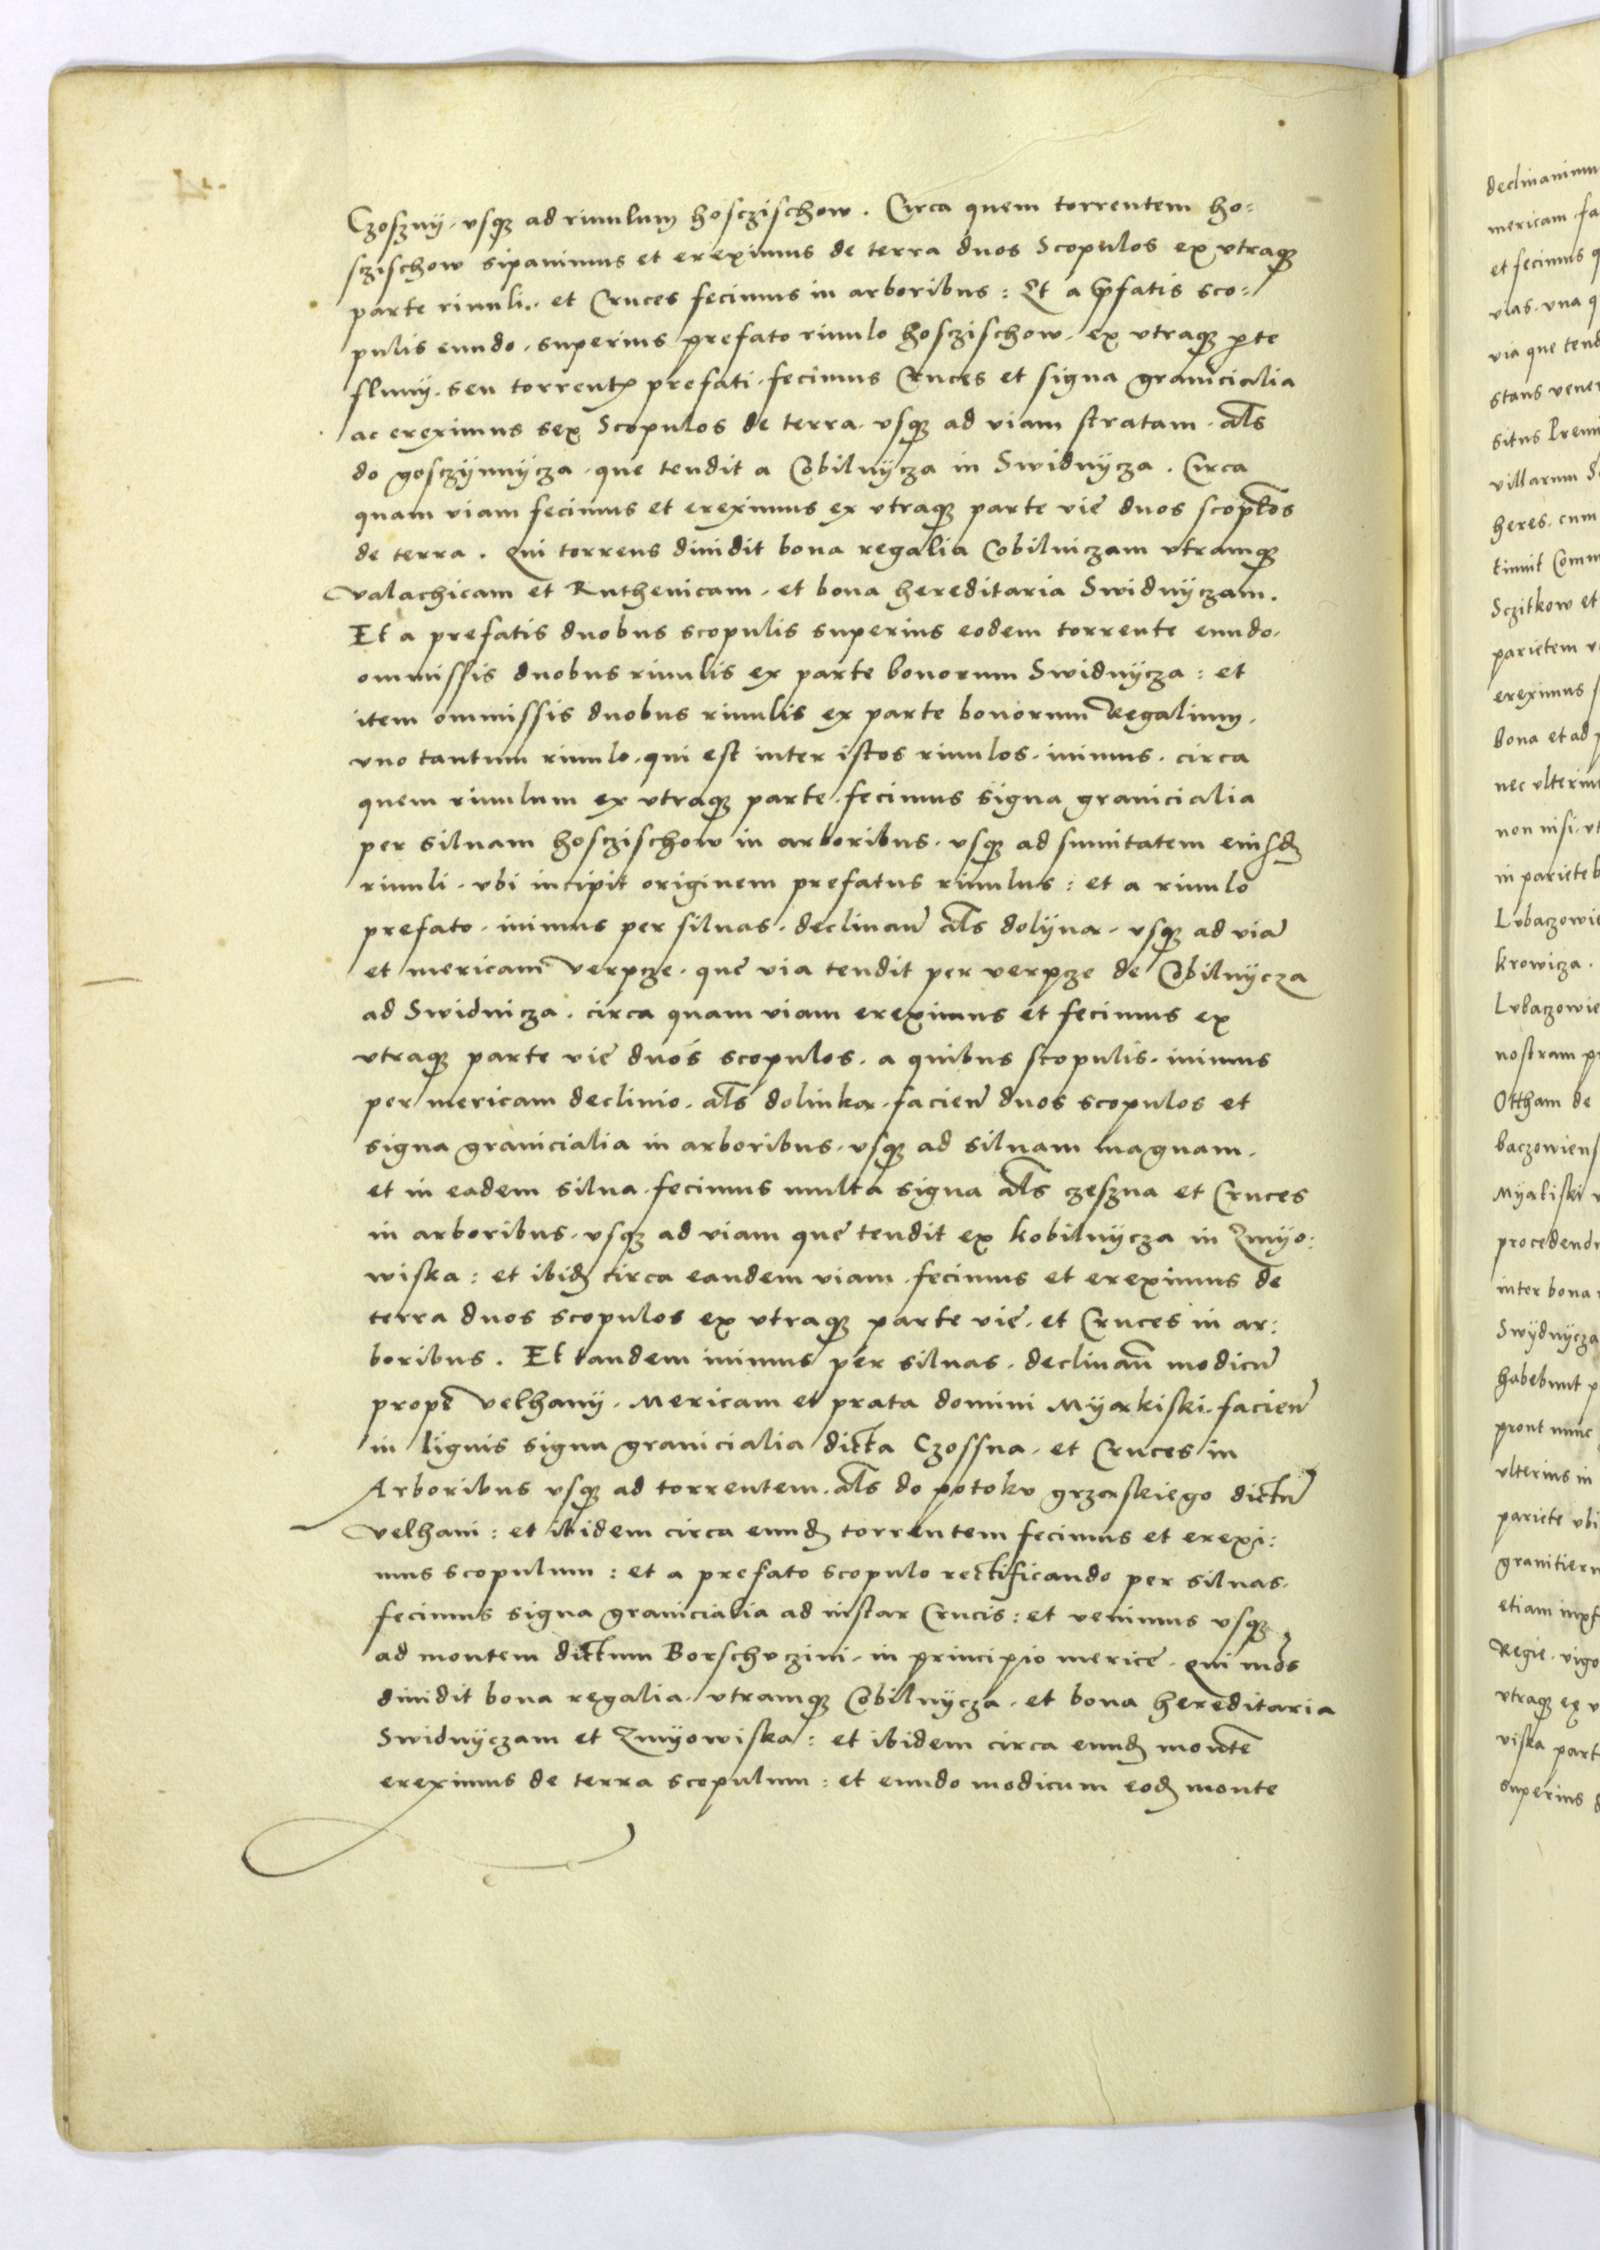 Czoszny, vsqȝ ad riuulum hosczischow. Circa quem torrentem ho=
sczischow sipauimus et ereximus de terra duos Scopulos ex vtraqȝ
parte riuuli, et Cruces fecimus in arboribus: Et a p̃fatis sco=
pulis eundo, superius prefato riuulo hosczischow, ex vtraqȝ p̱te
fluuy, seu torrentꝭ prefati, fecimus Cruces et signa granicialia
ac ereximus sex Scopulos de terra, vsqȝ ad viam stratam, al̃s
do gosczynnycza, que tendit a Cobilnycza in Swidnycza. Circa
quam viam fecimus et ereximus ex vtraqȝ parte vie duos scopl̃os
de terra. Qui torrens diuidit bona regalia Cobilniczam vtramqȝ
valachicam et Ruthenicam, et bona hereditaria Swidnyczam.
Et a prefatis duobus scopulis superius eodem torrente eundo,
ommissis duobus riuulis ex parte bonorum Swidnycza: et
item ommissis duobus riuulis ex parte bonorum Regalium,
vno tantum riuulo, qui est inter istos riuulos, iuimus, circa
quem riuulum ex vtraqȝ parte, fecimus signa granicialia
per siluam hosczischow in arboribus, vsqȝ ad sumitatem eiusdȝ
riuuli, vbi incipit originem prefatus riuulus: et a riuulo
prefato, iuimus per siluas, declinan̄ al̃s dolyna, vsqȝ ad viā
et mericam verpcze, que via tendit per verpcze de Cobilnycza
ad Swidnicza, circa quam viam ereximus et fecimus ex
vtraqȝ parte vie duos scopulos, a quibus scopulis, iuimus
per mericam declinio, al̃s dolinka, facien̄ duos scopulos et
signa granicialia in arboribus, vsqȝ ad siluam magnam,
et in eadem silua, fecimus multa signa al̃s czeszna et Cruces
in arboribus, vsqȝ ad viam que tendit ex kobilnycza in Zmyo:
wiska: et ibidȝ circa eandem viam, fecimus et ereximus de
terra duos scopulos ex vtraqȝ parte vie, et Cruces in ar:
boribus. Et tandem iuimus per siluas, declinan̄ modicū
prope velhany, Mericam et prata domini Myakiski, facien̄
in lignis signa granicialia dicta Czossna, et Cruces in
Arboribus vsqȝ ad torrentem, al̃s do potoku grzaskiego dictū
velhani: et ibidem circa eundȝ torrentem fecimus et erexi:
mus scopulum: et a prefato scopulo rectificando per siluas,
fecimus signa granicialia ad instar Crucis: et venimus vsqȝ
ad montem dictum Borschvczini, in principio merice, qui mōs
diuidit bona regalia, vtramqȝ Cobilnycza, et bona hereditaria
Swidnyczam et Zmyowiska: et ibidem circa eundȝ montē
ereximus de terra scopulum: et eundo modicum eodȝ monte